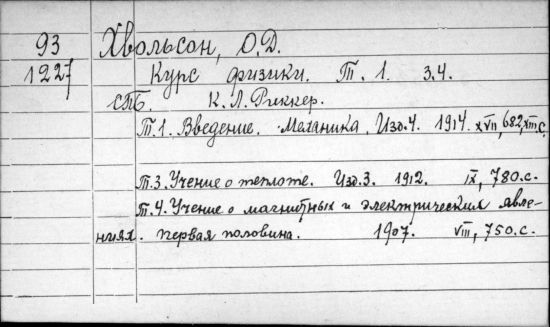 93 Хвольсон, О.Д.
1227 Курс физики. Т. 1. 3.4.
СПБ. К.Л.Риккер.
Т.1. Введение. Механика. Изд.4. 1914. XVII, 682, XIII с.
Т.3. Учение о теплоте. Изд.3. 1912. IX, 780.с.
Т.4. Учение о магнитных и электрических явле-
ниях. первая половина. 1907. VIII, 750.с.